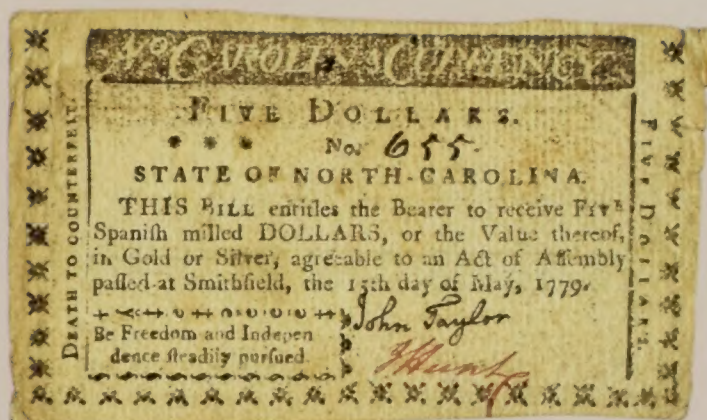 No CAROLINA CURRENCY.
FIVE DOLLARS.
No. 655.
STATE OF NORTH-CAROLINA.
THIS BILL entitles the Bearer to receive FIVE
Spaniſh milled DOLLARS, or the Value thereof,
in Gold or Silver, agreeable to an Act of Aſſembly
paſſed at Smithfield, the 15th day of May, 1779.
Be Freedom and Indepen
dence ſteadily purſued.
John Taylor
J Hunt
DEATH TO COUNTERFEIT.
FIVE DOLLARS.